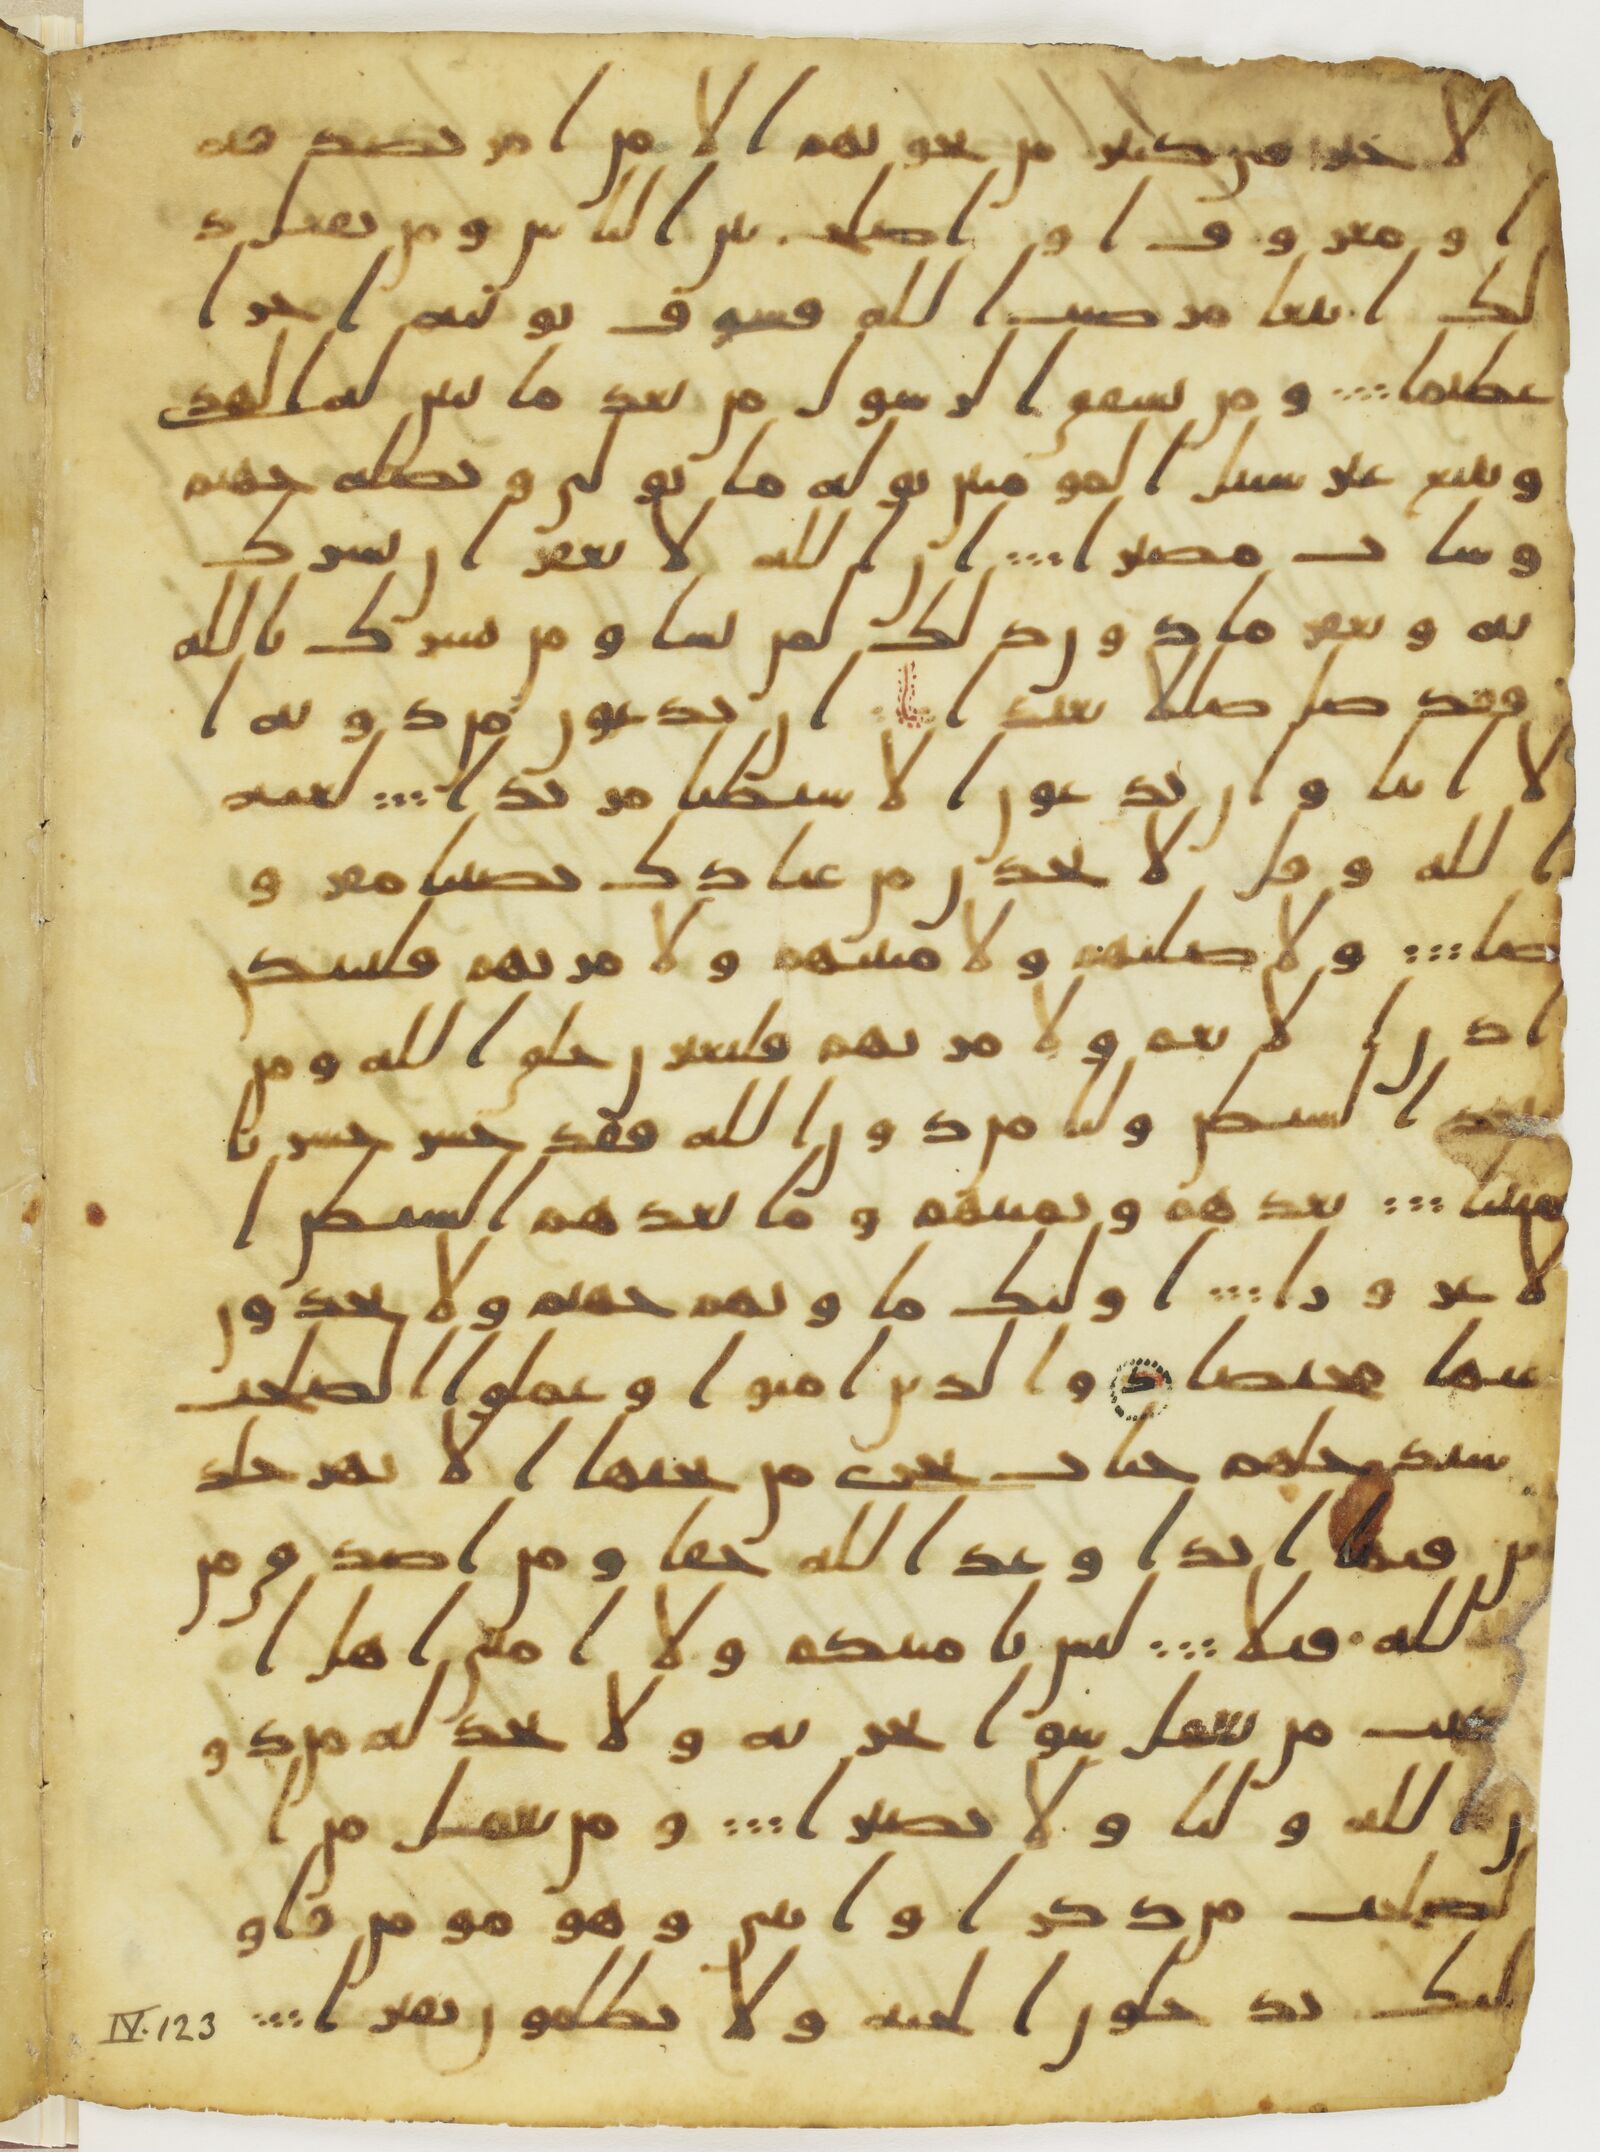 لا خير في كثير من نجويهم الا من امر بصدقه
او معروف او اصلح بين الناس ومن يفعل ذ
لك ابتغا مرضت الله فسوف نوتيه اجرا
عظيما ؞ ومن يشقق الرسول من بعد ما تبين له الهدى
ويتبع غير سبيل المومنين نوله ما تولى ونصله جهنم
وسات مصيرا ؞ ان الله لا يغفر ان يشرك
به ويغفر ما دون ذلك لمن يشا ومن يشرك بالله
فقد ضل ضللا بعيدا ؞ ان يدعون من دونه ا
لا انثا وان يدعون الا شيطنا مريدا ؞ لعنه
الله وقل لاتخذن من عبادك نصيبا مفرو
ضا ؞ ولاضلنهم ولامنينهم ولامرنهم فليبتكن
اذن الانعم ولامرنهم فليغيرن خلق الله ومن
يتخذ الشيطن وليا من دون الله فقد خسر خسرنا
مبينا ؞ يعدهم ويمنيهم وما يعدهم الشيطن ا
لا غرورا ؞ اوليك ماويهم جهنم ولا يجدون
عنها محيصا والذين امنوا وعملوا الصلحت
سندخلهم جنات تجري من تحتها الانهر خلد
ين فيها ابدا وعد الله حقا ومن اصدق من
الله قيلا ؞ ليس بامنيكم ولا امني اهل ا
لكتب من يعمل سوا يجز به ولا يجد له من دو
ن الله وليا ولا نصيرا ؞ ومن يعمل من ا
لصلحت من ذكر او انثى وهو مومن فاو
ليك يدخلون الجنه ولا يظلمون نقيرا ؞
IV.123